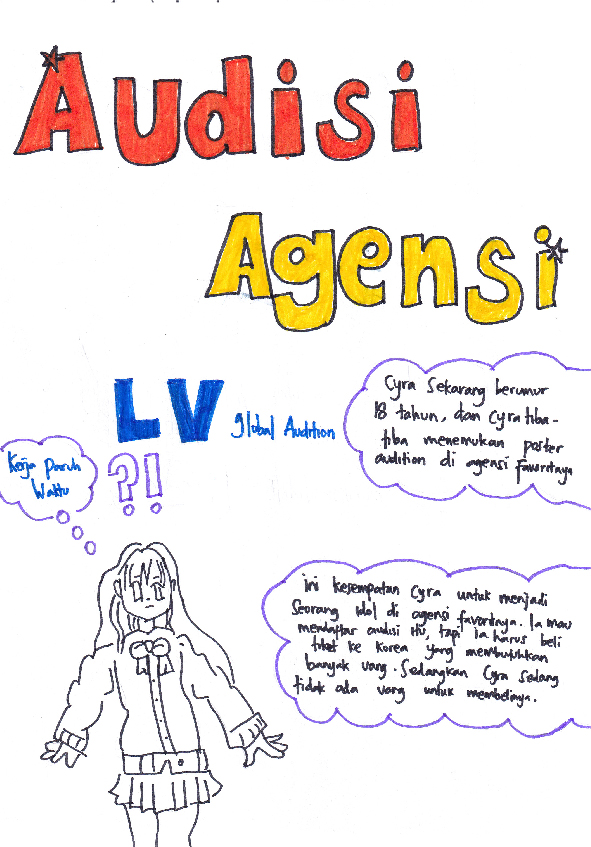 Audisi
Agensi
LV Global Audition
Cyra Sekarang berumur
18 tahun, dan Cyra tiba-
tiba menemukan poster
audition di agensi favoritnya
Kerja paruh
Waktu
?!
ini kesempatan Cyra untuk menjadi
Seorang idol di agensi favoritnya. Ia mau
mendaftar audisi itu, tapi Ia harus beli
tiket ke Korea yang membutuhkan
banyak uang. Sedangkan Cyra Sedang
tidak ada uang untuk membelinya.